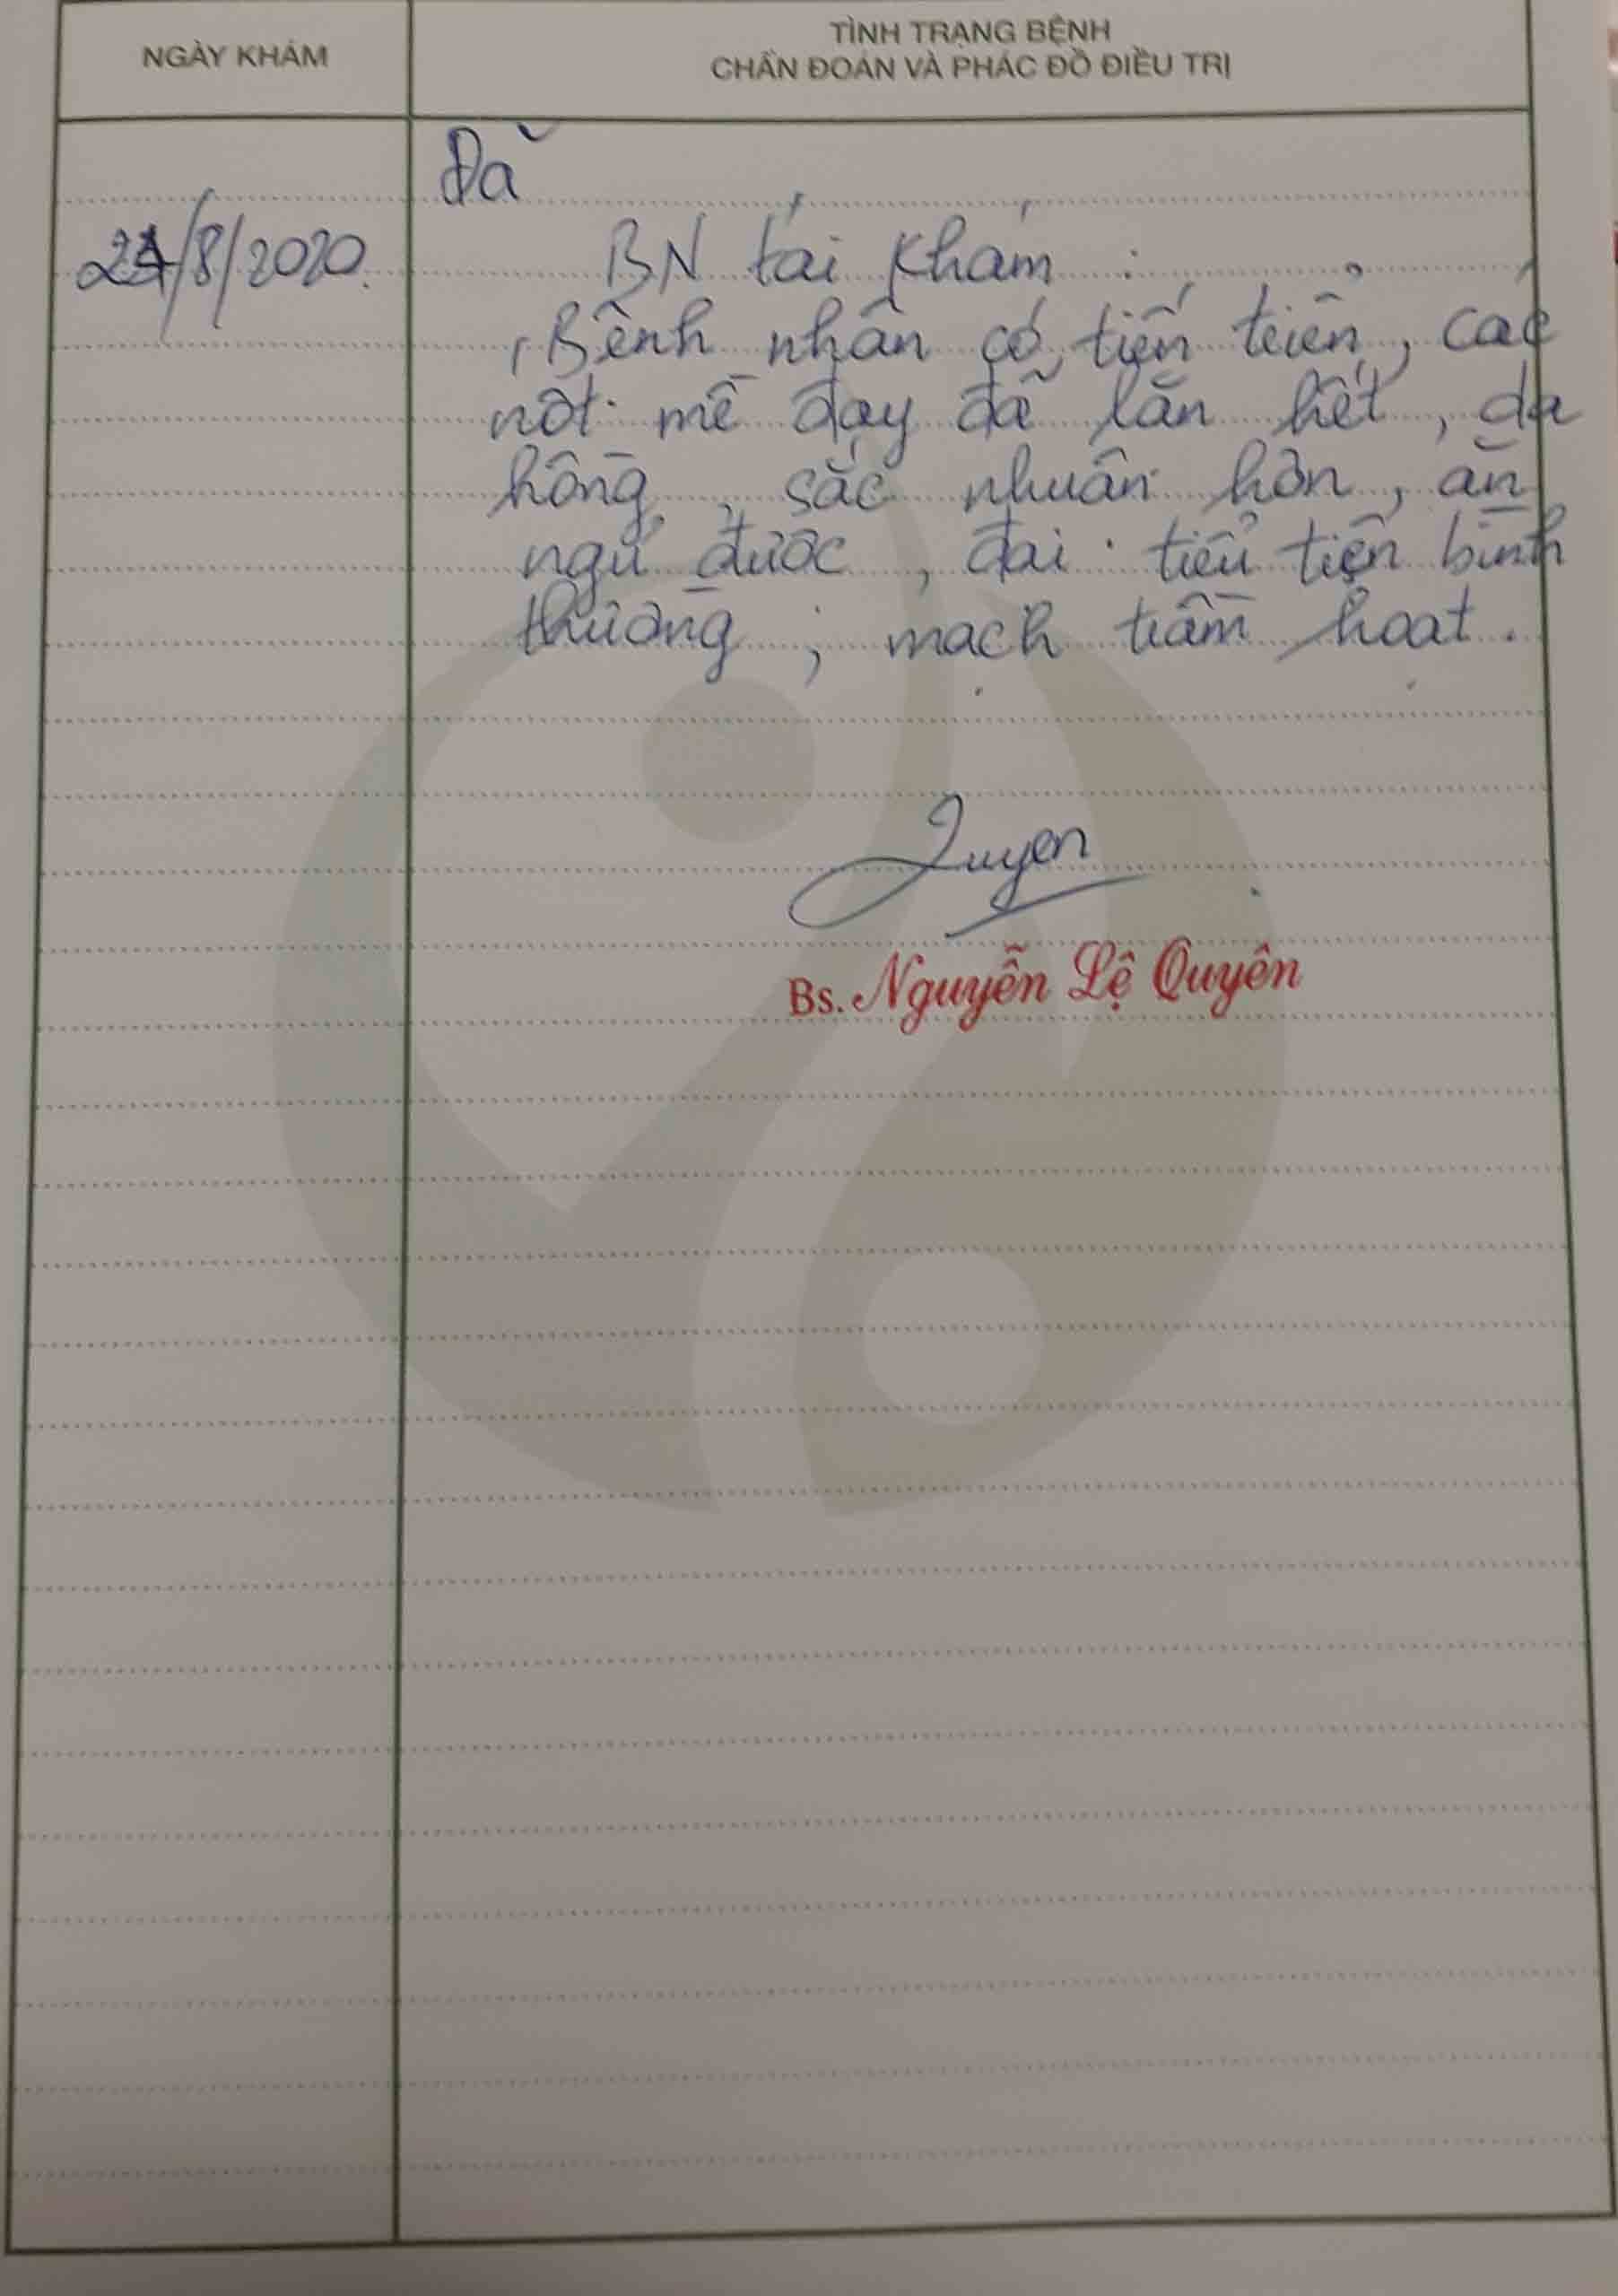 NGÀY KHÁM
TÌNH TRẠNG BỆNH
CHẨN ĐOÁN VÀ PHÁC ĐỒ ĐIỀU TRỊ
Đã
24/8/2020.
BN tái khám :
Bệnh nhân có tiến triển, các
nốt mề đay đã lặn hết, da
hồng, sắc nhuận hơn, ăn
ngủ được, đại tiểu tiện bình
thường; mạch trầm hoạt.
Quyên
Bs. Nguyễn Lệ Quyên